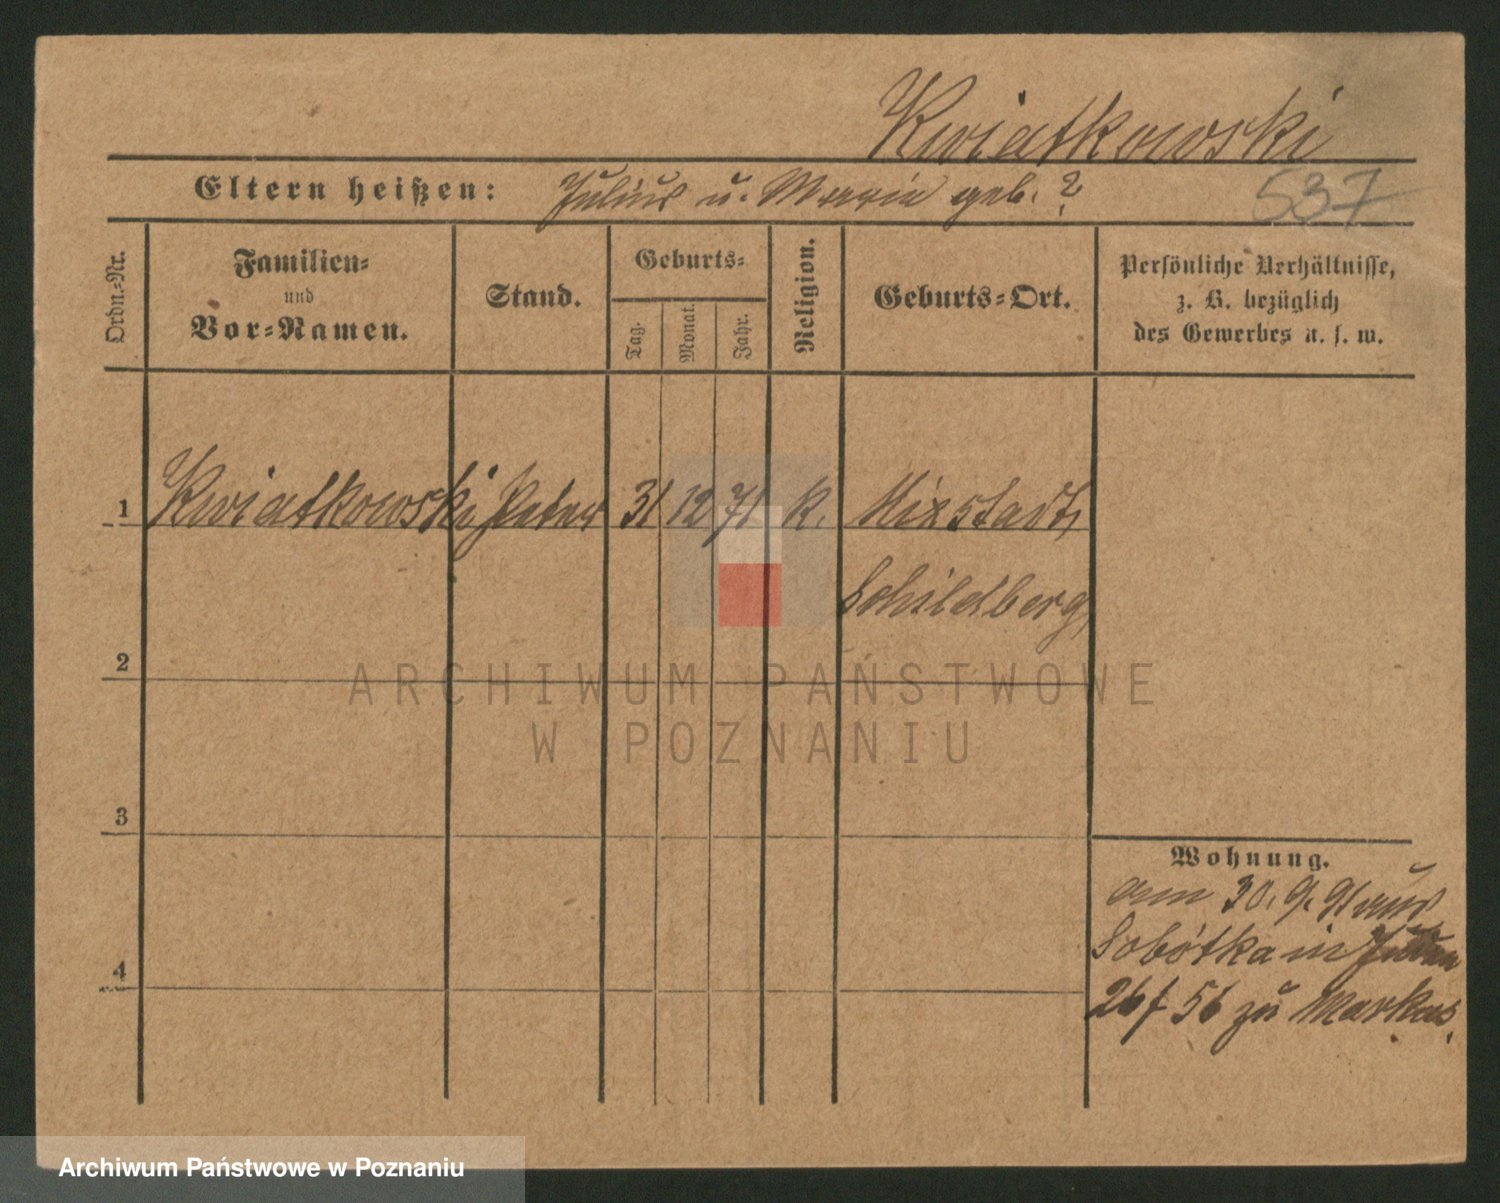 Kwiatkowski
Eltern heißen: Julius u. Maria geb. ?
537
Ordn.-Nr.
Familien-
und
Vor-Namen.
Stand.
Geburts-
Tag.
Monat.
Jahr.
Religion.
Geburts-Ort.
Persönliche Verhältnisse,
z. B. bezüglich
des Gewerbes u. s. w.
1 Kwiatkowski Peter 31 12 71 k. Mixstadt,
Schildberg,
2
3
4
Wohnung.
am 30. 9. 91 aus
Sobótka in
26/ 56 zu Markus.
ARCHIWUM PAŃSTWOWE
W POZNANIU
Archiwum Państwowe w Poznaniu